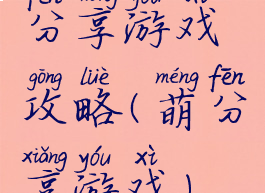 分享游戏
gōng lüè méng fēn
攻略(萌分
xiǎng yóu xì
享游戏)